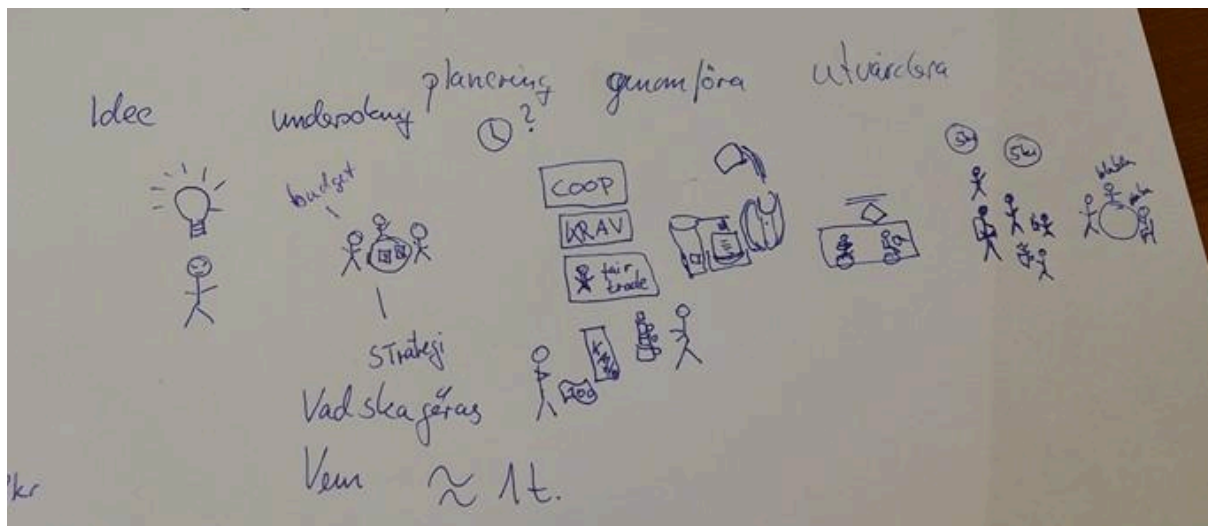 Idee
undersökning
planering
genomföra
utvärdera
?
budget
COOP
KRAV
fair
trade
STrategi
Vad ska göras
Vem ≈ 1t.
100
5kr
5kr
blabla
kr